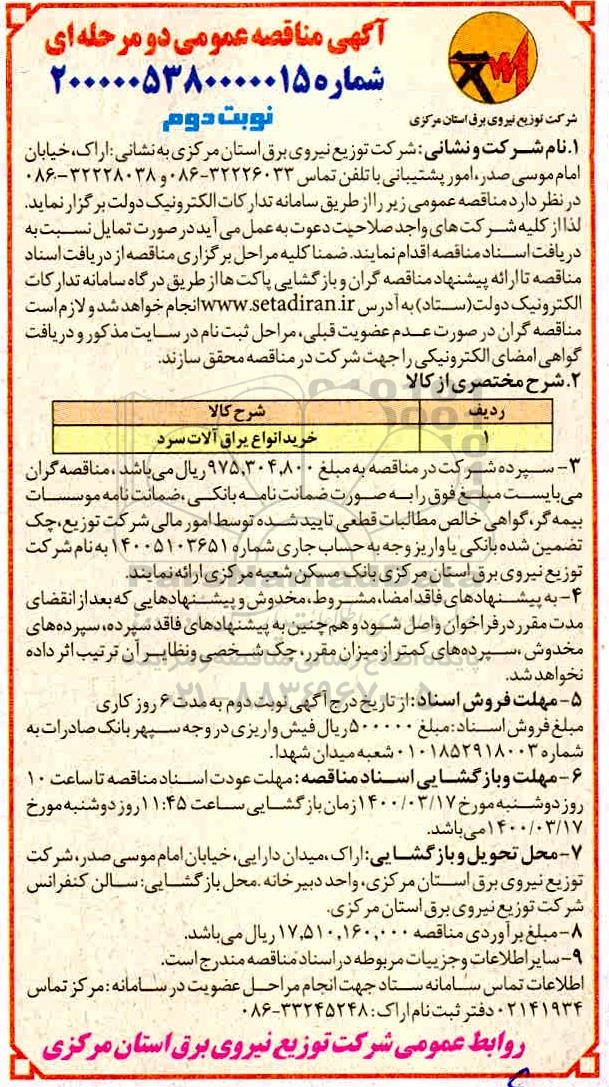 آگهی مناقصه عمومی دو مرحله ای
شماره ۲۰۰۰۰۰۵۳۸۰۰۰۰۰۱۵
نوبت دوم
شرکت توزیع نیروی برق استان مرکزی
۱. نام شرکت و نشانی: شرکت توزیع نیروی برق استان مرکزی به نشانی: اراک، خیابان
امام موسی صدر، امور پشتیبانی با تلفن تماس ۳۲۲۲۶۰۳۳-۰۸۶ و ۳۲۲۲۸۰۳۸-۰۸۶
در نظر دارد مناقصه عمومی زیر را از طریق سامانه تدارکات الکترونیک دولت برگزار نماید.
لذا از کلیه شرکت های واجد صلاحیت دعوت به عمل می آید در صورت تمایل نسبت به
دریافت اسناد مناقصه اقدام نمایند. ضمنا کلیه مراحل برگزاری مناقصه از دریافت اسناد
مناقصه تا ارائه پیشنهاد مناقصه گران و بازگشایی پاکت ها از طریق درگاه سامانه تدارکات
الکترونیک دولت (ستاد) به آدرس www.setadiran.ir انجام خواهد شد و لازم است
مناقصه گران در صورت عدم عضویت قبلی، مراحل ثبت نام در سایت مذکور و دریافت
گواهی امضای الکترونیکی را جهت شرکت در مناقصه محقق سازند.
۲. شرح مختصری از کالا
ردیف شرح کالا
۱ خرید انواع یراق آلات سرد
۳- سپرده شرکت در مناقصه به مبلغ ۹۷۵,۳۰۴,۸۰۰ ریال می باشد، مناقصه گران
می بایست مبلغ فوق را به صورت ضمانت نامه بانکی، ضمانت نامه موسسات
بیمه گر، گواهی خالص مطالبات قطعی تایید شده توسط امور مالی شرکت توزیع، چک
تضمین شده بانکی یا واریز وجه به حساب جاری شماره ۱۴۰۰۵۱۰۳۶۵۱ به نام شرکت
توزیع نیروی برق استان مرکزی بانک مسکن شعبه مرکزی ارائه نمایند.
۴- به پیشنهادهای فاقد امضا، مشروط، مخدوش و پیشنهادهایی که بعد از انقضای
مدت مقرر در فراخوان واصل شود و همچنین به پیشنهادهای فاقد سپرده، سپرده های
مخدوش، سپرده های کمتر از میزان مقرر، چک شخصی و نظایر آن ترتیب اثر داده
نخواهد شد.
۵- مهلت فروش اسناد: از تاریخ درج آگهی نوبت دوم به مدت ۶ روز کاری
مبلغ فروش اسناد: مبلغ ۵۰۰۰۰۰ ریال فیش واریزی در وجه سپهر بانک صادرات به
شماره ۰۱۰۱۸۵۲۹۱۸۰۰۳ شعبه میدان شهدا.
۶- مهلت و بازگشایی اسناد مناقصه: مهلت عودت اسناد مناقصه تا ساعت ۱۰
روز دوشنبه مورخ ۱۴۰۰/۰۳/۱۷ زمان بازگشایی ساعت ۱۱:۴۵ روز دوشنبه مورخ
۱۴۰۰/۰۳/۱۷ می باشد.
۷- محل تحویل و بازگشایی: اراک، میدان دارایی، خیابان امام موسی صدر، شرکت
توزیع نیروی برق استان مرکزی، واحد دبیرخانه. محل بازگشایی: سالن کنفرانس
شرکت توزیع نیروی برق استان مرکزی.
۸- مبلغ برآوردی مناقصه ۱۷,۵۱۰,۱۶۰,۰۰۰ ریال می باشد.
۹- سایر اطلاعات و جزییات مربوطه در اسناد مناقصه مندرج است.
اطلاعات تماس سامانه ستاد جهت انجام مراحل عضویت در سامانه: مرکز تماس
۰۲۱۴۱۹۳۴ دفتر ثبت نام اراک: ۳۳۲۴۵۲۴۸-۰۸۶
روابط عمومی شرکت توزیع نیروی برق استان مرکزی